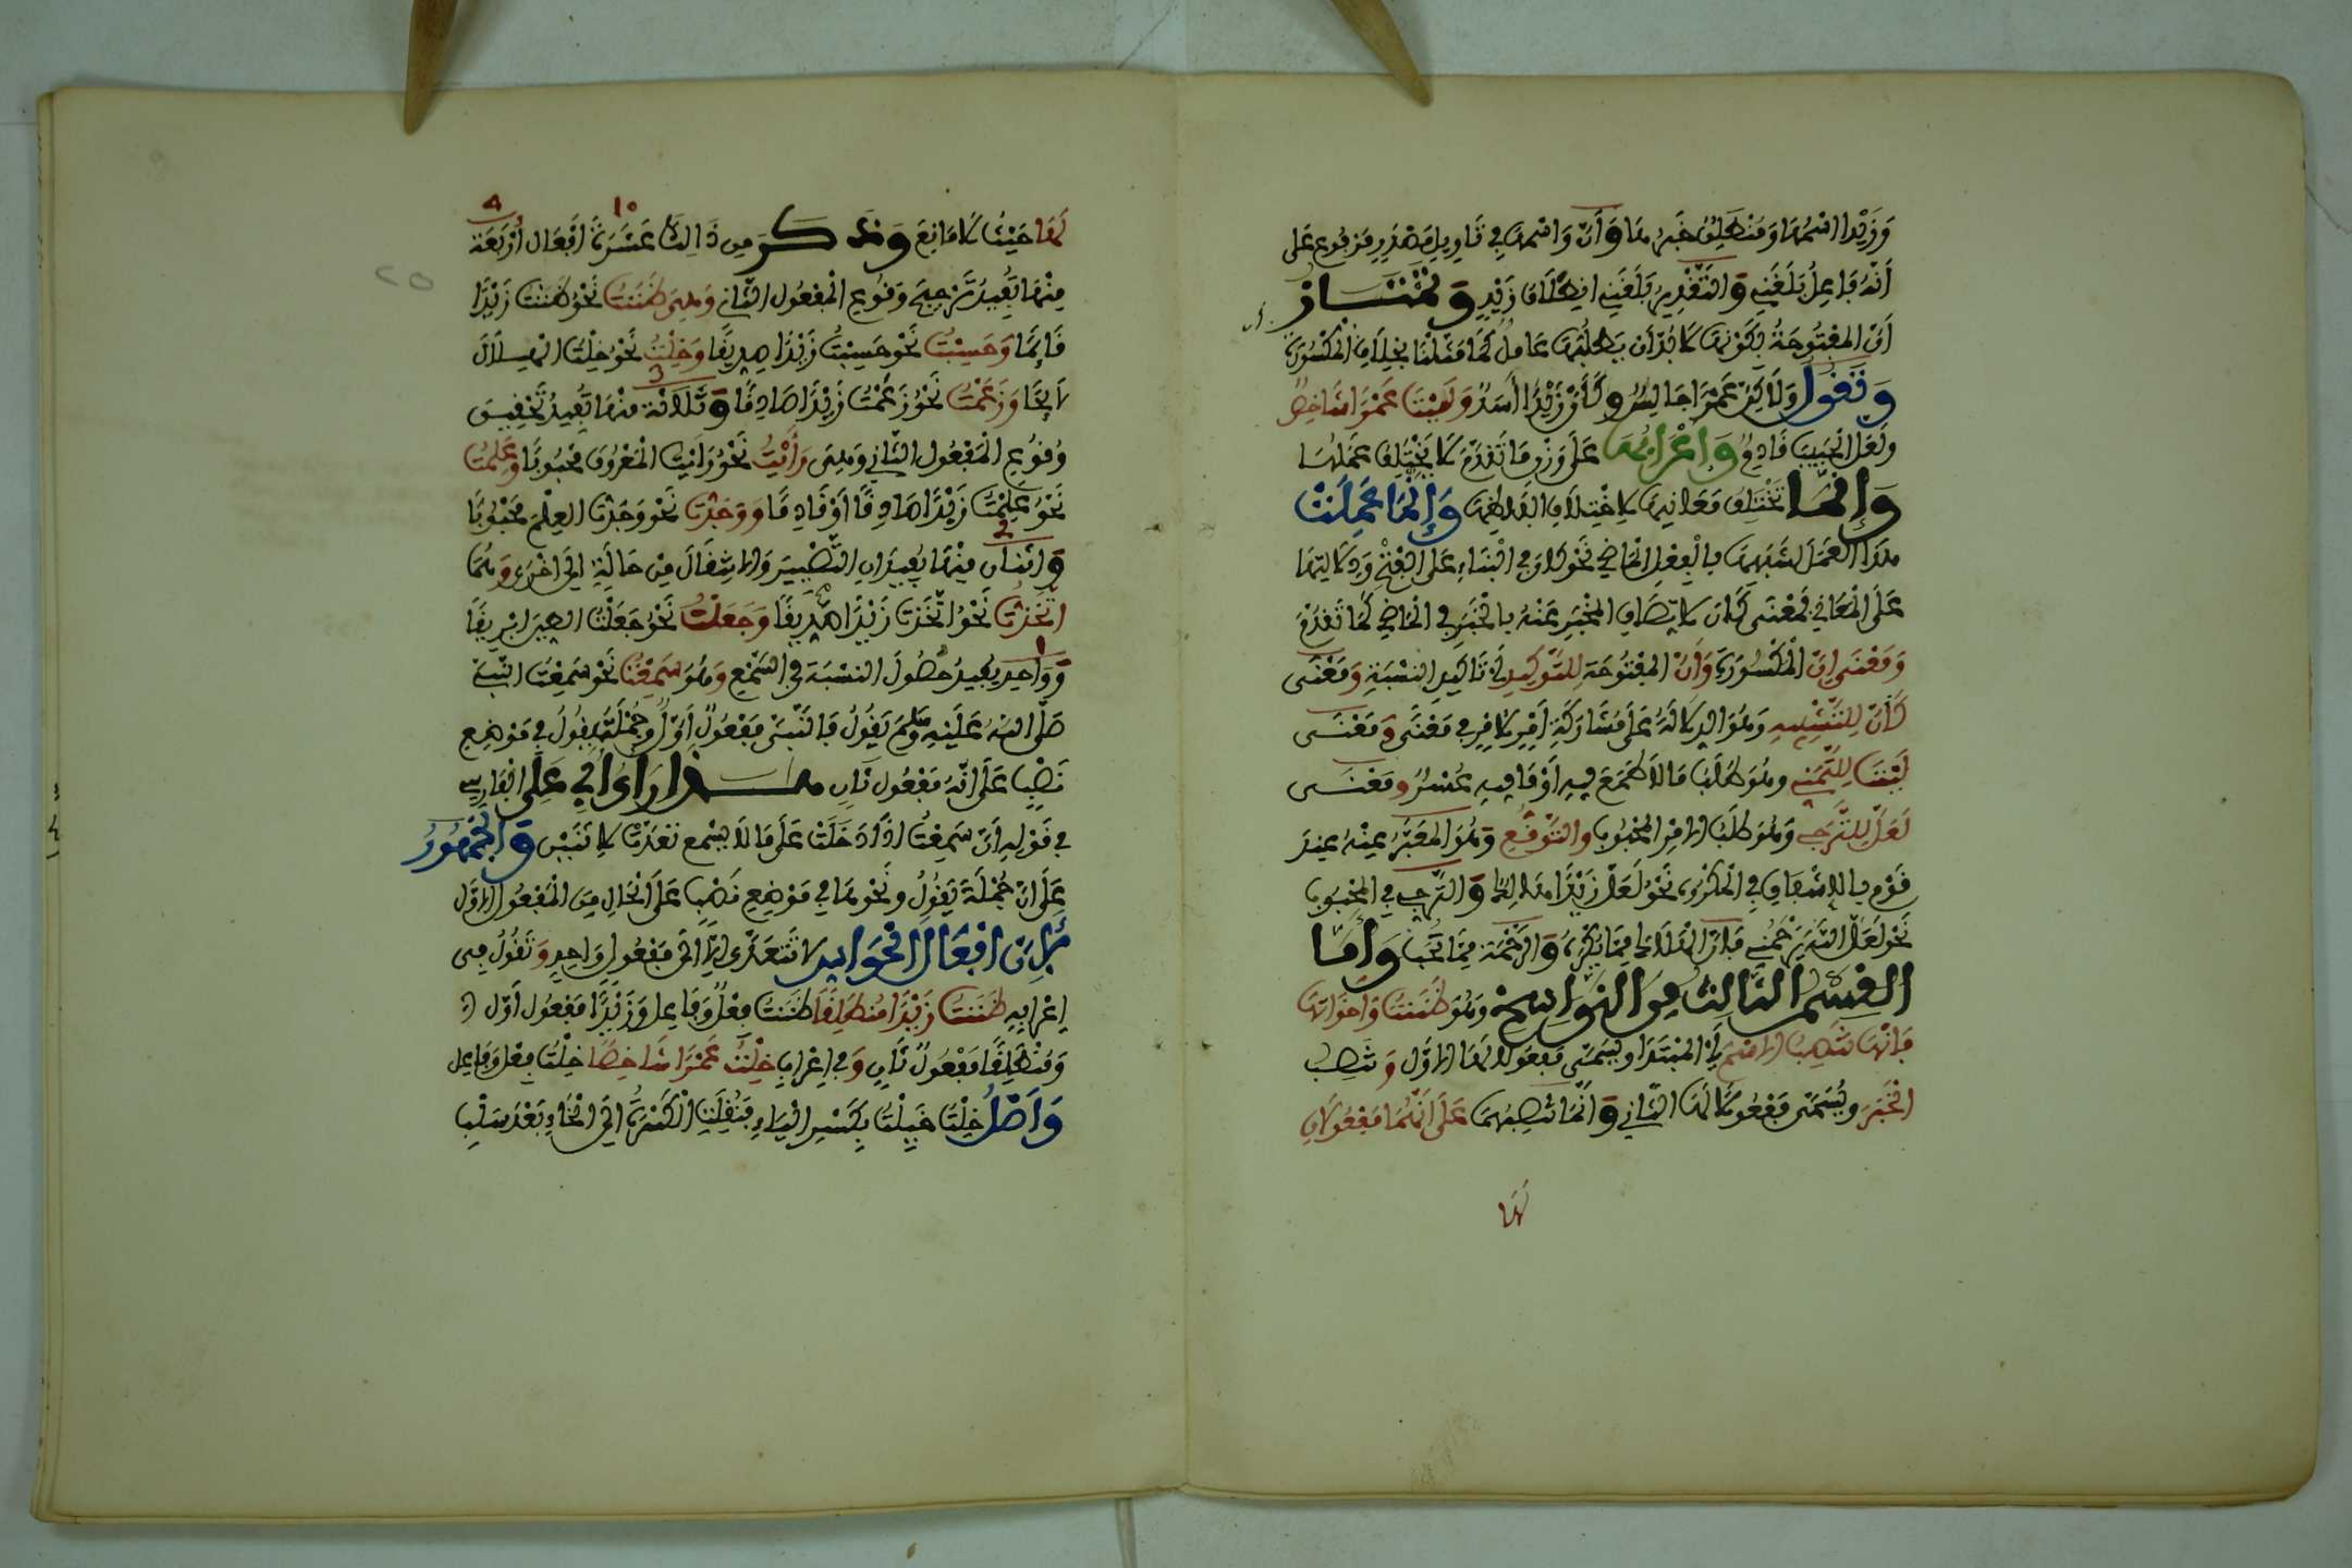 وَزَيْدًا اسْمُهَا وَمُنْطَلِقٌ خَبَرُهَا وَأَنَّ وَاسْمُهَا فِي تَاوِيلِ مَصْدَرٍ مَرْفُوعٍ عَلَى
أَنَّهُ فَاعِلُ بَلَغَنِي وَالتَّقْدِيرُ بَلَغَنِي انْطِلَاقُ زَيْدٍ وَتَمْتَازُ
أَنَّ الْمَفْتُوحَةُ بِكَوْنِهَا لَا بُدَّ أَنْ يَطْلُبَهَا عَامِلٌ كَمَا مَثَّلْنَا بِخِلَافِ الْمَكْسُورَةِ
وَتَقُولُ وَلَكِنَّ عَمْرًا جَالِسٌ وَكَأَنَّ زَيْدًا أَسَدٌ وَلَيْتَ عَمْرًا شَاخِصٌ
وَلَعَلَّ الْحَبِيبَ قَادِمٌ وَإِعْرَابُهَا عَلَى وَزْنِ مَا تَقَدَّمَ لَا يَخْتَلِفُ عَمَلُهَا
وَإِنَّمَا تَخْتَلِفُ مَعَانِيهَا لِاخْتِلَافِ أَلْفَاظِهَا وَإِنَّمَا عَمِلَتْ
هَذَا الْعَمَلَ لِشَبَهِهَا بِالْفِعْلِ الْمَاضِي نَحْو فِي الْبِنَاءِ عَلَى الْفَتْحِ وَدَلَالَتِهَا
عَلَى الْمَعَانِي فَمَعْنَى كَانَ لِاتِّصَافِ الْمُخْبَرِ عَنْهُ بِالْخَبَرِ فِي الْمَاضِي كَمَا تَقَدَّمَ
وَمَعْنَى إِنَّ الْمَكْسُورَةِ وَأَنَّ الْمَفْتُوحَةِ لِلتَّوْكِيدِ أَيْ تَاكِيدِ النِّسْبَةِ وَمَعْنَى
كَأَنَّ لِلتَّشْبِيهِ وَهُوَ الدِّلَالَةُ عَلَى مُشَارَكَةِ أَمْرٍ لِأَمْرٍ فِي مَعْنًى وَمَعْنَى
لَيْتَ لِلتَّمَنِّي وَهُوَ طَلَبُ مَا لَا طَمَعَ فِيهِ أَوْ مَا فِيهِ عُسْرٌ وَمَعْنَى
لَعَلَّ لِلتَّرَجِّي وَهُوَ طَلَبُ الْأَمْرِ الْمَحْبُوبِ وَالتَّوَقُّعِ وَهُوَ الْمُعَبَّرُ عَنْهُ عِنْدَ
قَوْمٍ بِالْإِشْفَاقِ فِي الْمَكْرُوهِ نَحْوُ لَعَلَّ زَيْدًا هَالِكٌ وَالتَّرَجِّي فِي الْمَحْبُوبِ
نَحْوُ لَعَلَّ اللَّهَ يَرْحَمُنِي فَإِنَّ الْهَلَاكَ مِمَّا يُكْرَهُ وَالرَّحْمَةَ مِمَّا تُحَبُّ وَأَمَّا
الْقِسْمُ الثَّالِثُ مِنَ النَّوَاسِخِ وَهُوَ ظَنَنْتُ وَأَخَوَاتُهَا
فَإِنَّهَا تَنْصِبُ الْاسْمَ أَيْ الْمُبْتَدَأ وَيُسَمَّى مَفْعُولَهَا الْأَوَّل وَتَنْصِبُ
الْخَبَرَ وَيُسَمَّى مَفْعُولَهَا الثَّانِي وَإِنَّمَا تَنْصِبُهُمَا عَلَى أَنَّهُمَا مَفْعُولَانِ
لَهَا
١٠ ٤
لَهَا حَيْثُ لَا مَانِعَ وَذَكَرَ مِن ذَالِكَ عَشَرَةَ أَفْعَال أَرْبَعَة
مِنْهَا تُفِيدُ تَرْجِيحَ وُقُوعِ الْمَفْعُولِ الثَّانِي وَهِيَ ظَنَنْتُ نَحْوُ ظَنَنْتُ زَيْدًا
قَائِمًا وَحَسِبْتُ نَحْوُ حَسِبْتُ زَيْدًا صَدِيقًا وَخِلْتُ نَحْوُ خِلْتُ الْهِلَالَ
لَائِحًا وَزَعَمْتُ نَحْوُ زَعَمْتُ زَيْدًا صَادِقًا وَثَلَاثَة مِنْهَا تُفِيدُ تَحْقِيقَ
وُقُوعِ الْمَفْعُولِ الثَّانِي وَهِيَ رَأَيْتُ نَحْوُ رَأَيْتُ الْمَعْرُوفَ مَحْبُوبًا وَعَلِمْتُ
نَحْوُ عَلِمْتُ زَيْدًا صَادِقًا أَوْ قَادِمًا وَوَجَدْتُ نَحْوُ وَجَدْتُ الْعِلْمَ مَحْبُوبًا
وَاثْنَانِ مِنْهَا يُفِيدَانِ التَّصْيِيرَ وَالْانْتِقَالَ مِنْ حَالَةٍ إِلَى أُخْرَى وَهُمَا
اتَّخَذْتُ نَحْوُ اتَّخَذْتُ زَيْدًا صَدِيقًا وَجَعَلْتُ نَحْوُ جَعَلْتُ
وَوَاحِد يُفِيدُ حُصُولَ النِّسْبَةِ فِي السَّمْعِ وَهُوَ سَمِعْتُ نَحْوُ سَمِعْتُ النَّبِيَّ
صَلَّى اللهُ عَلَيْهِ وَسَلَّمَ يَقُولُ فَالنَّبِيَّ مَفْعُولٌ أَوَّلٌ وَجُمْلَةُ يَقُولُ فِي مَوْضِعِ
نَصْبٍ عَلَى أَنَّهُ مَفْعُول ثَانٍ هَذَا رَأْيُ أَبِي عَلِيٍّ الْفَارِسِي
فِي قَوْلِهِ أَنَّ سَمِعْتُ إِذَا دَخَلَتْ عَلَى مَا لَا يُسْمَع تَعَدَّتْ لِاثْنَيْنِ وَالْجُمْهُورُ
عَلَى أَنَّ جُمْلَةَ يَقُولُ وَنَحْوهَا فِي مَوْضِعِ نَصْبٍ عَلَى الْحَالِ مِنَ الْمَفْعُولِ الْأَوَّلِ
لِأَنَّ أَفْعَالَ الْحَوَاسِّ لَا تَتَعَدَّى إِلَّا إِلَى مَفْعُولٍ وَاحِدٍ وَتَقُولُ فِي
إِعْرَابِهِ ظَنَنْتُ زَيْدًا مُنْطَلِقًا ظَنَنْتُ فِعْلٌ وَفَاعِل وَزَيْدًا مَفْعُول أَوَّل
وَمُنْطَلِقًا مَفْعُولٌ ثَانٍ وَفِي إِعْرَابِ خِلْتُ عَمْرًا شَاخِصًا خِلْتُ فِعْل وَفَاعِل
وَأَصْلُ خِلْتُ خَيِلْتُ بِكَسْرِ الْيَاءِ فَنُقِلَتِ الْكَسْرَةُ إِلَى الْخَاءِ بَعْدَ سَلْبِ